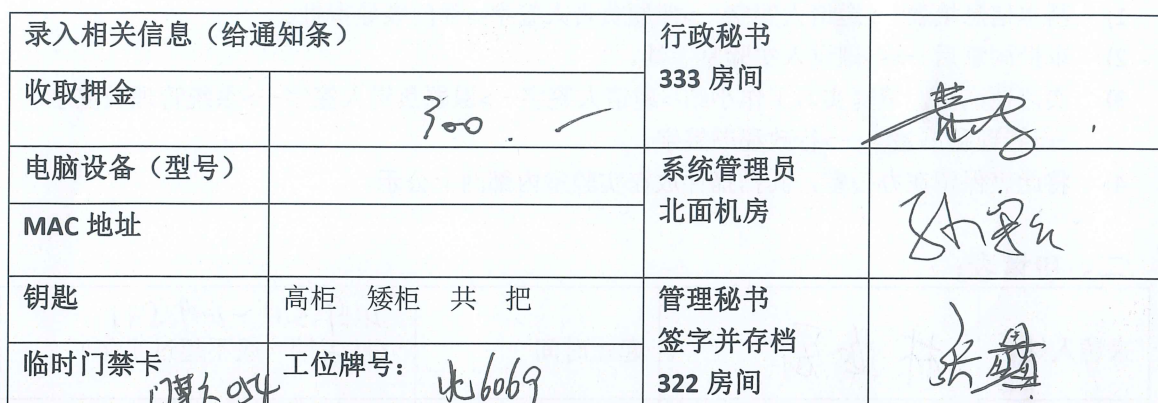 录入相关信息（给通知条）
行政秘书
333 房间
收取押金
300.一
电脑设备（型号）
系统管理员
北面机房
MAC 地址
钥匙
高柜 矮柜 共 把
管理秘书
签字并存档
322 房间
临时门禁卡
054
工位牌号：
北6069